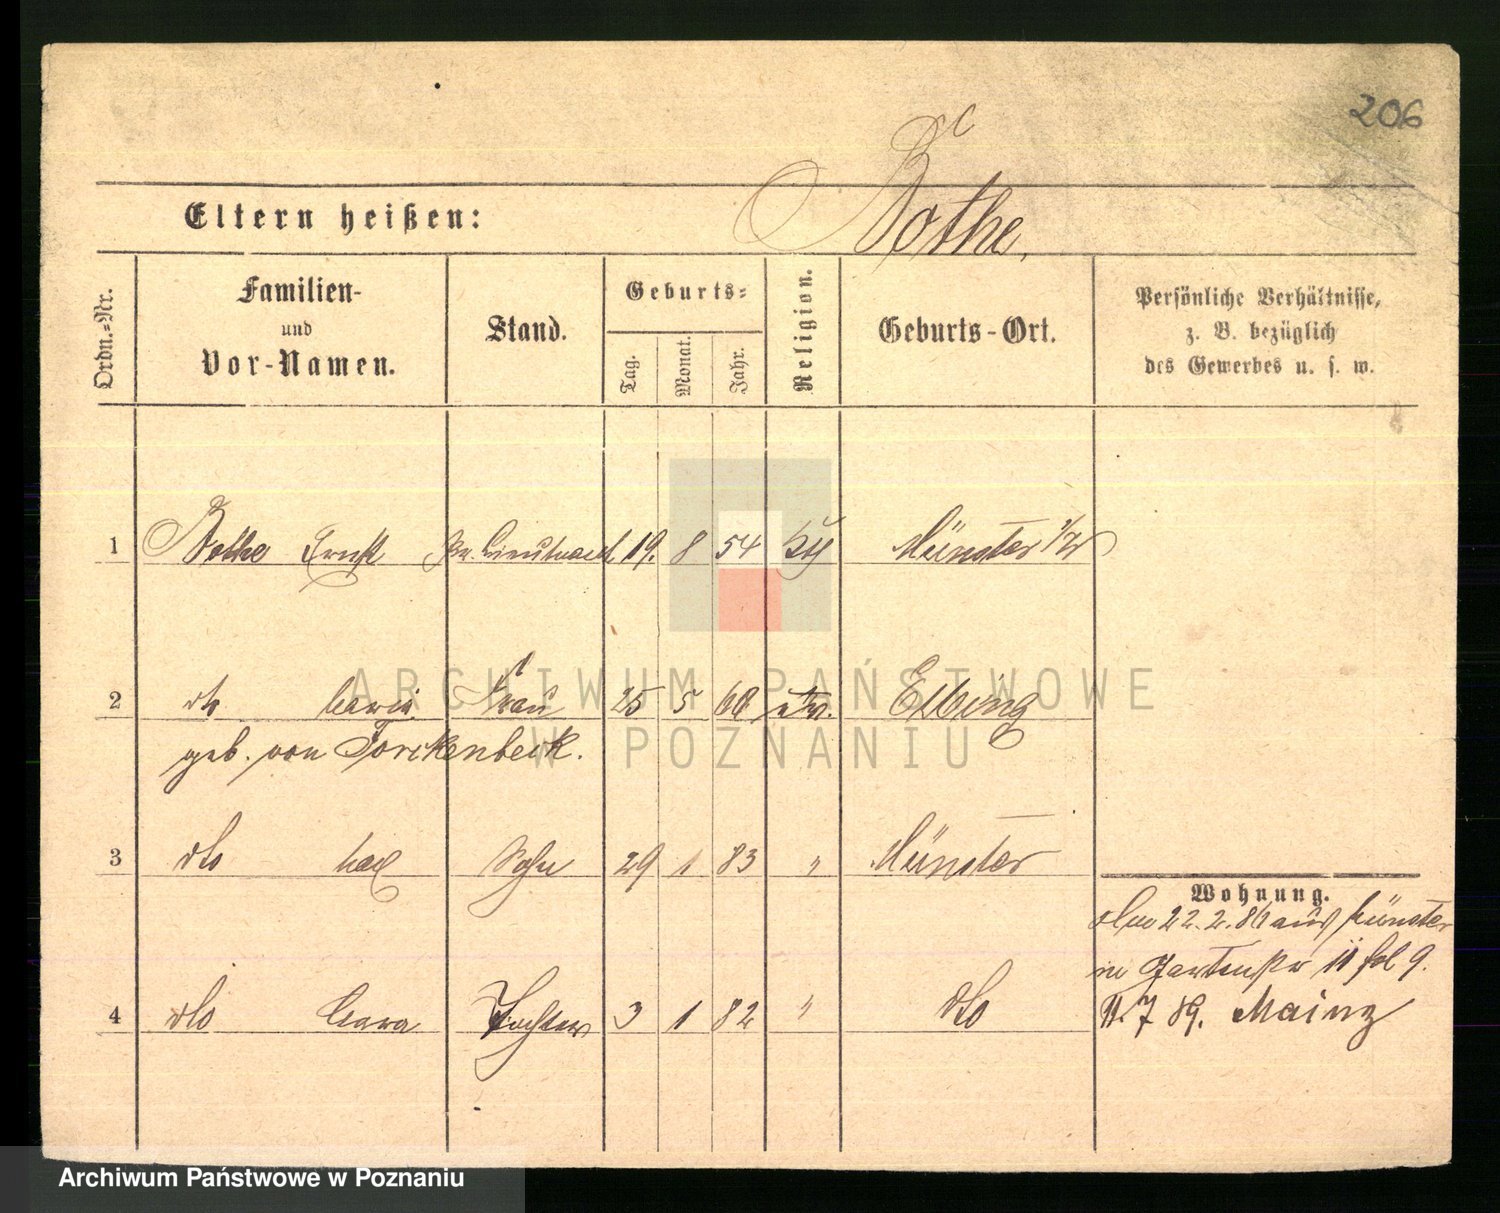 206
Bothe.
Eltern heißen:
Ordn.-Nr.
Familien-
und
Vor-Namen.
Stand.
Geburts-
Tag. Monat. Jahr.
Religion.
Geburts-Ort.
Persönliche Verhältnisse,
z. B. bezüglich
des Gewerbes u. s. w.
1 Bothe Ernst Pr. Lieutnant 19. 8 54 Münster i/W
2 dto Frau 25 5 60 ev. Elbing
geb. von Forckenbeck.
3 dto Sohn 29 1 83 " Münster
Wohnung.
22. 2. 86 aus Münster
in Gartenstr 11 fol 9.
4 dto Clara Tochter 3 1 82 " dto
11. 7 89. Mainz
ARCHIWUM PAŃSTWOWE
W POZNANIU
Archiwum Państwowe w Poznaniu